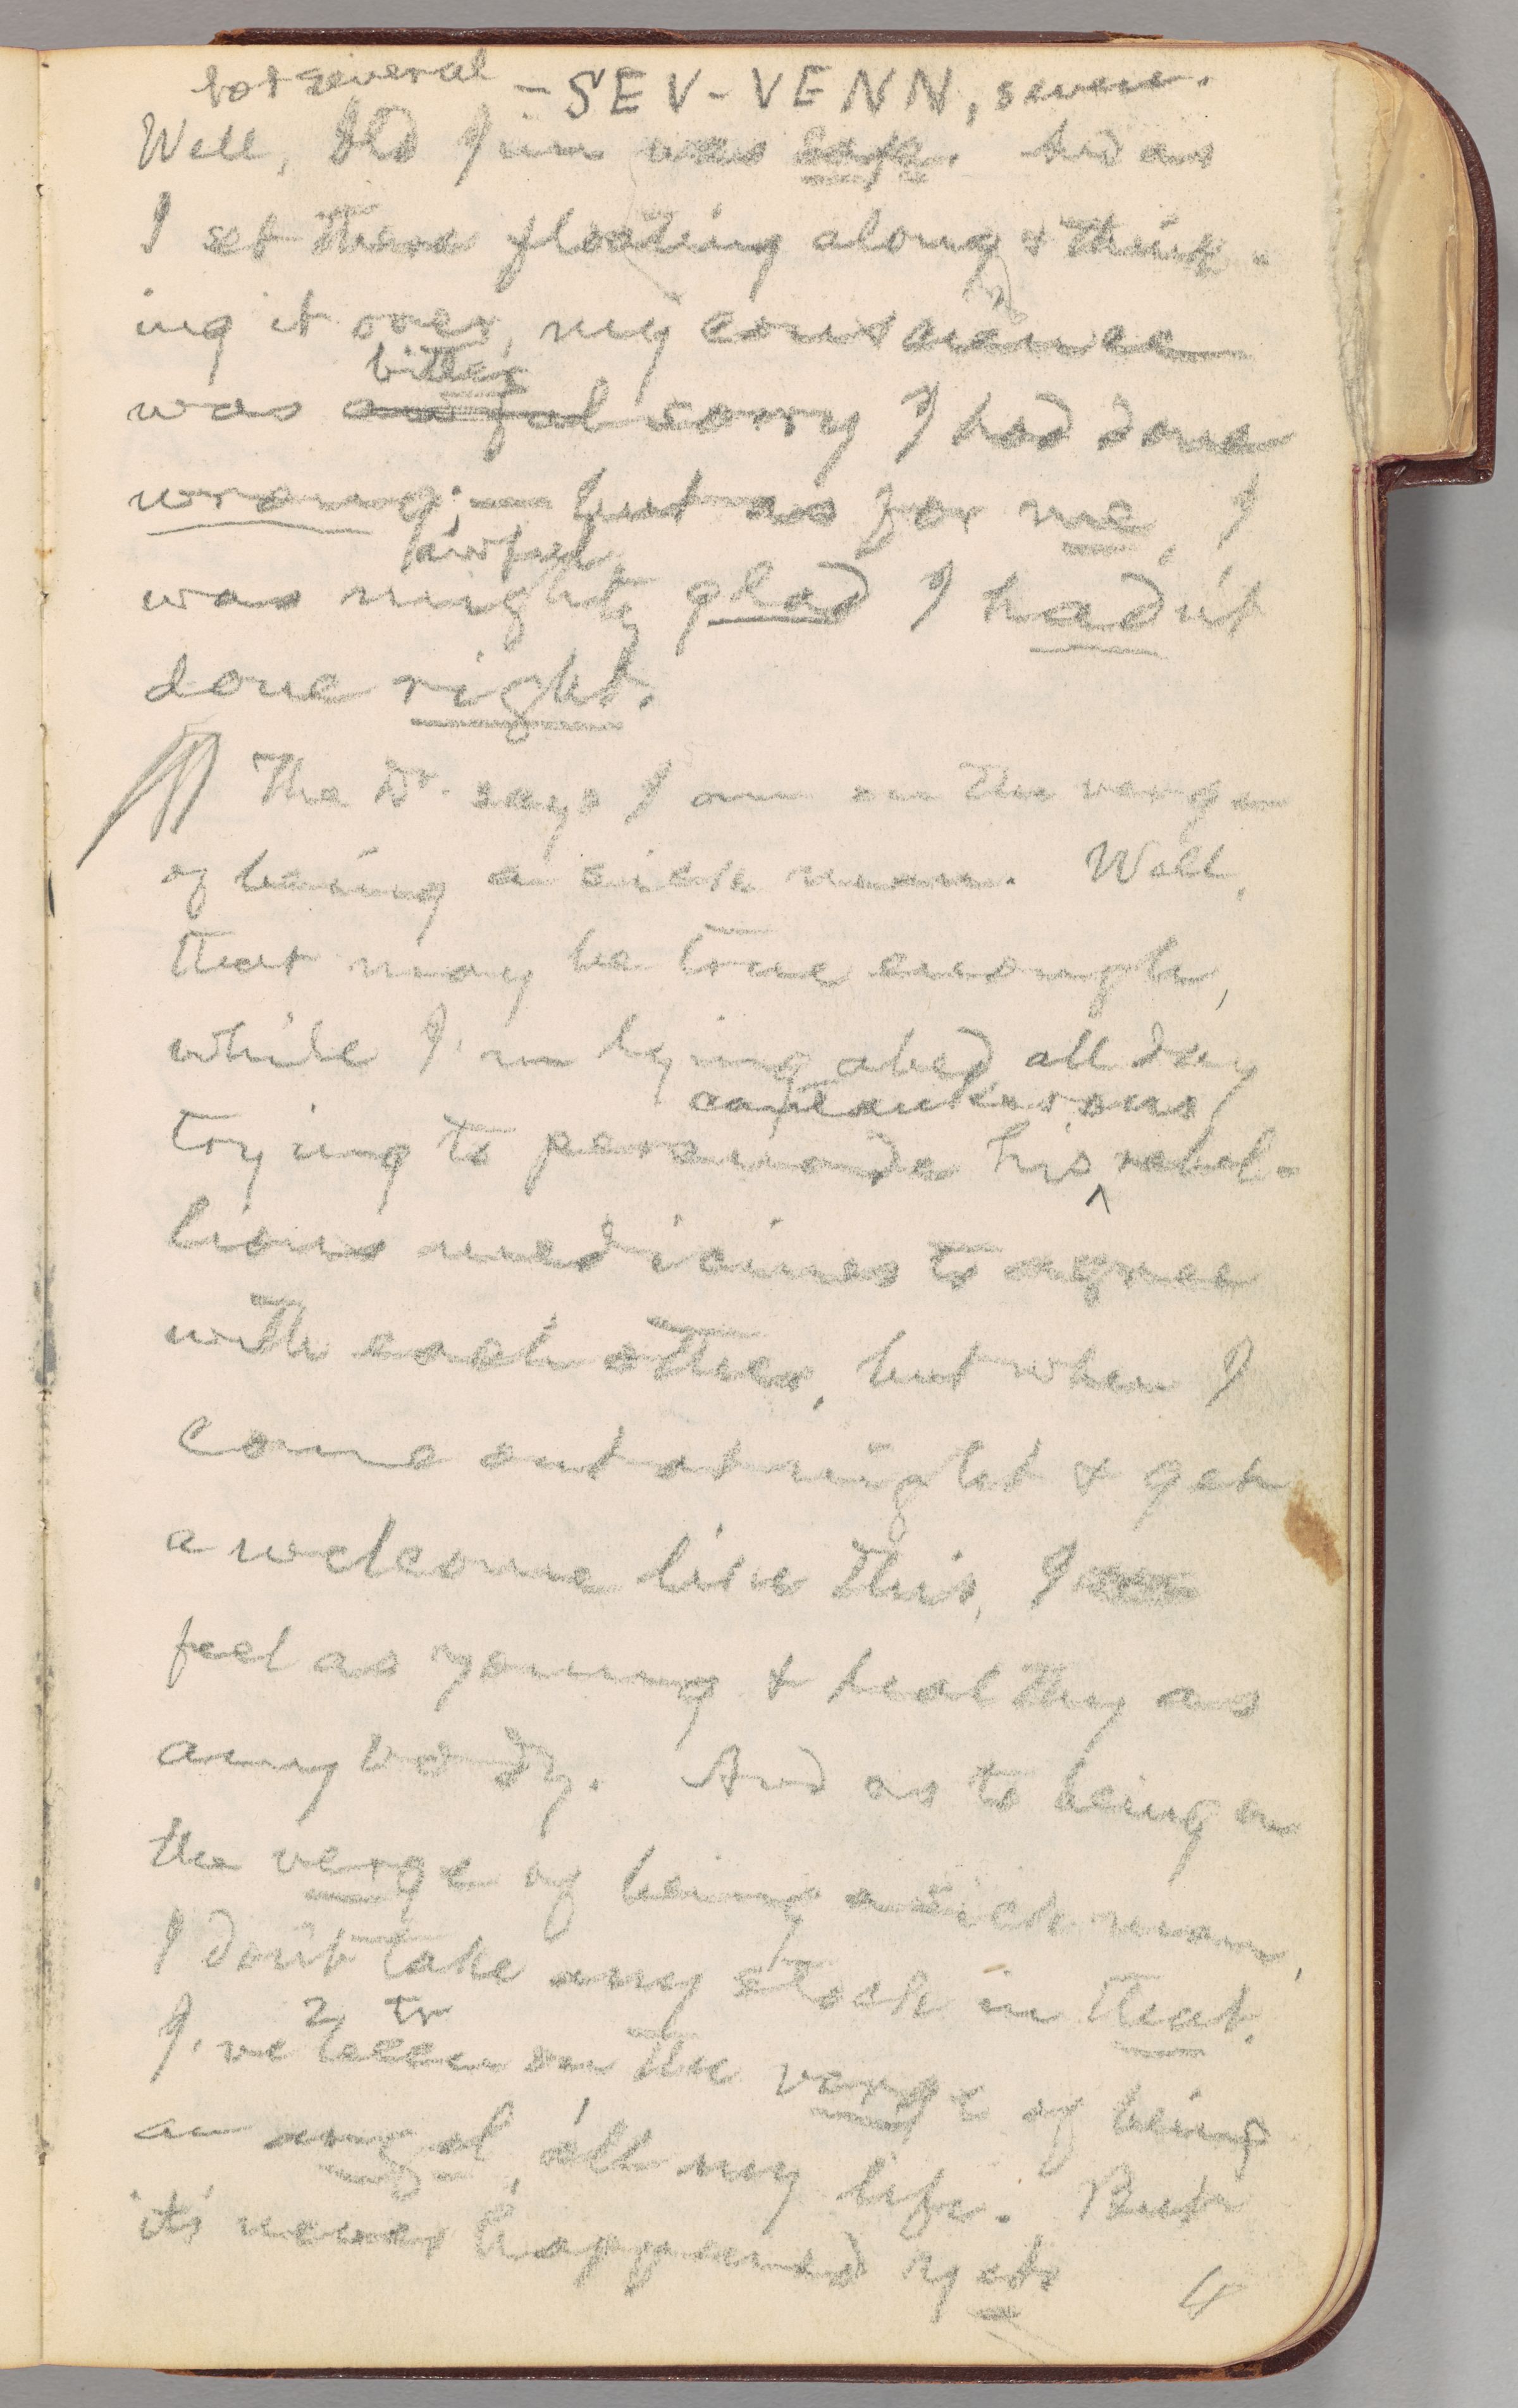 not several – SEV-VENN, seven.
Well, Old Jim was safe. And as
I set there floating along & think-
ing it over, my conscience
bitter
was awful sorry I had done
wrong; — but as for me, I
awful
was mighty glad I hadn't
done right.
The Dr. says I am on the verge
of being a sick man. Well,
that may be true enough,
while I'm lying abed all day
cantankerous,
trying to persuade his rebel-
lious medicines to agree
with each other, but when I
come out at night & get
a welcome like this, I
feel as young & healthy as
anybody. And as to being on
the verge of being a sick man,
I don't take any stock in that.
2 tr
I've been on the verge of being
an angel, all my life. But
it's never happened yet.